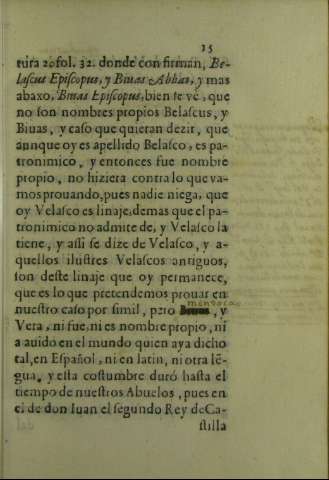 15
tura 20 fol. 32. donde con firman, Be-
lascus Episcopus, y Biuas Abbas, y mas
abaxo, Biuas Episcopus, bien se vé, que
no son nombres propios Belascus, y
Biuas, y caso que quieran dezir, que
aunque oy es apellido Belasco, es pa-
tronimico, y entonces fue nombre
propio, no hiziera contra lo que va-
mos prouando, pues nadie niega, que
oy Velasco es linaje, demas que el pa-
tronimico no admite de, y Velasco la
tiene, y assi se dize de Velasco, y a-
quellos ilustres Velascos antiguos,
son deste linaje que oy permanece,
que es lo que pretendemos prouar en
nuestro caso por simil, pero mendoza, y
Vera, ni fue, ni es nombre propio, ni
a auido en el mundo quien aya dicho
tal, en Español, ni en latin, ni otra lē-
gua, y esta costumbre duró hasta el
tiempo de nuestros Abuelos, pues en
el de don Iuan el segundo Rey de Ca-
stilla